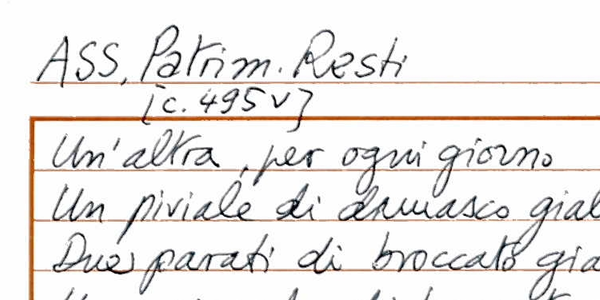 ASS, Patrim. Resti
[c. 495v]
Un'altra, per ogni giorno
Un piviale di damasco gial
Due parati di broccato gia